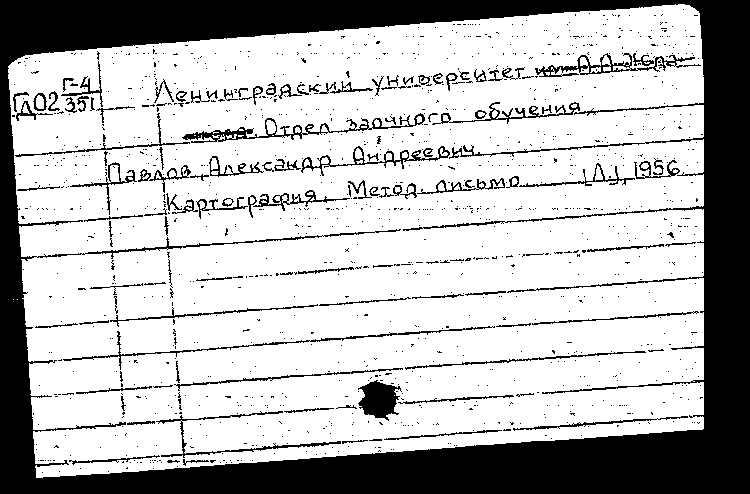 Гд02 Г-4/351
Ленинградский университет им. А.А. Жда-
нова. Отдел заочного обучения.
Павлов, Александр Андреевич.
Картография. Метод. письмо. [Л.], 1956